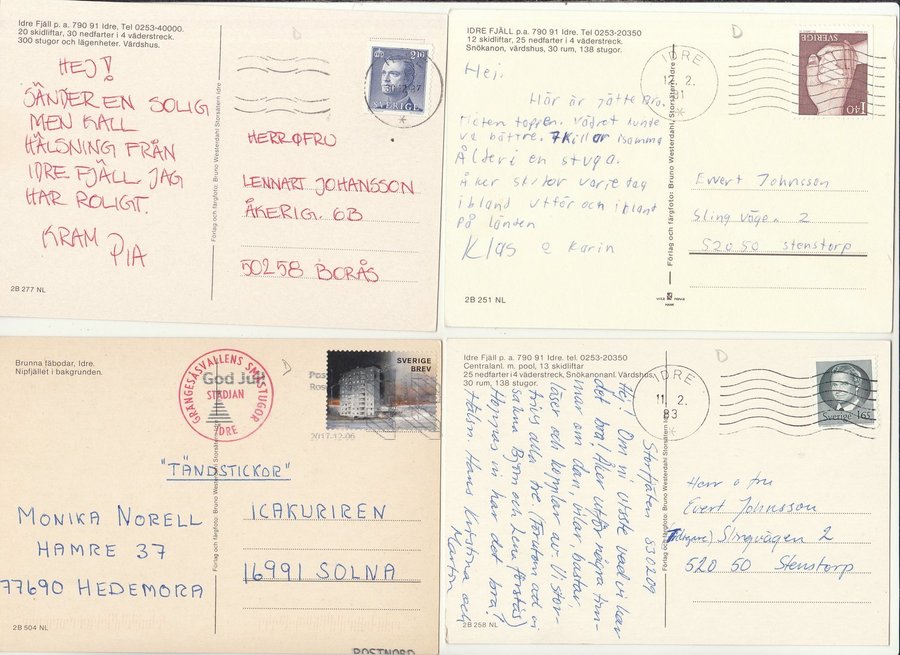 Idre Fjäll p. a. 790 91 Idre. Tel 0253-40000.
20 skidliftar, 30 nedfarter i 4 väderstreck.
300 stugor och lägenheter. Värdshus.
HEJ!
SÄNDER EN SOLIG
MEN KALL
HÄLSNING FRÅN
IDRE FJÄLL. JAG
HAR ROLIGT.
KRAM
PIA
2B 277 NL
Förlag och färgfoto: Bruno Westerdahl, Storsätern Idre
210
SVERIGE
HERR O FRU
LENNART JOHANSSON
ÅKERIG. 6B
50258 BORÅS
IDRE FJÄLL p. a. 790 91 Idre. Tel 0253-20350
12 skidliftar, 25 nedfarter i 4 väderstreck.
Snökanon, värdshus, 30 rum, 138 stugor.
Hej!
Här är jätte bra.
Vädret kunde
va bättre. 7 killar samma
Ålder i en stuga.
Åker skidor varje dag
ibland utför och ibland
på längden
Klas o Karin
2B 251 NL
Förlag och färgfoto: Bruno Westerdahl, Storsätern Idre
IDRE
12. 2.
81
SVERIGE
1.40
Evert Johnsson
Slingvägen 2
520 50 Stenstorp
Brunna fäbodar, Idre.
Nipfjället i bakgrunden.
GRÄNGESÅSVALLENS SMÅSTUGOR
God Jul!
STÄDJAN
IDRE
SVERIGE
BREV
2017-12-06
"TÄNDSTICKOR"
MONIKA NORELL
HAMRE 37
77690 HEDEMORA
2B 504 NL
Förlag och färgfoto: Bruno Westerdahl Storsätern Idre
ICAKURIREN
16991 SOLNA
POSTNORD
Idre Fjäll p. a. 790 91 Idre. tel. 0253-20350
Centralanl. m. pool, 13 skidliftar
25 nedfarter i 4 väderstreck, Snökanonanl. Värdshus
30 rum, 138 stugor.
Storfjäten 830209
Hej! Om ni visste vad vi har
det bra! Åker utför några tim-
mar om dan, vilar, bastar,
läser och kopplar av. Vi stor-
trivs alla tre. (Förutom att vi
saknar Björn och Lena förstås)
Hoppas ni har det bra?
Hälsn. Hans Kristina och
Martin
2B 258 NL
Förlag och färgfoto: Bruno Westerdahl Storsätern Idre
IDRE
11. 2.
83
Sverige 165
Herr o fru
Evert Johnsson
Slingvägen 2
520 50 Stenstorp